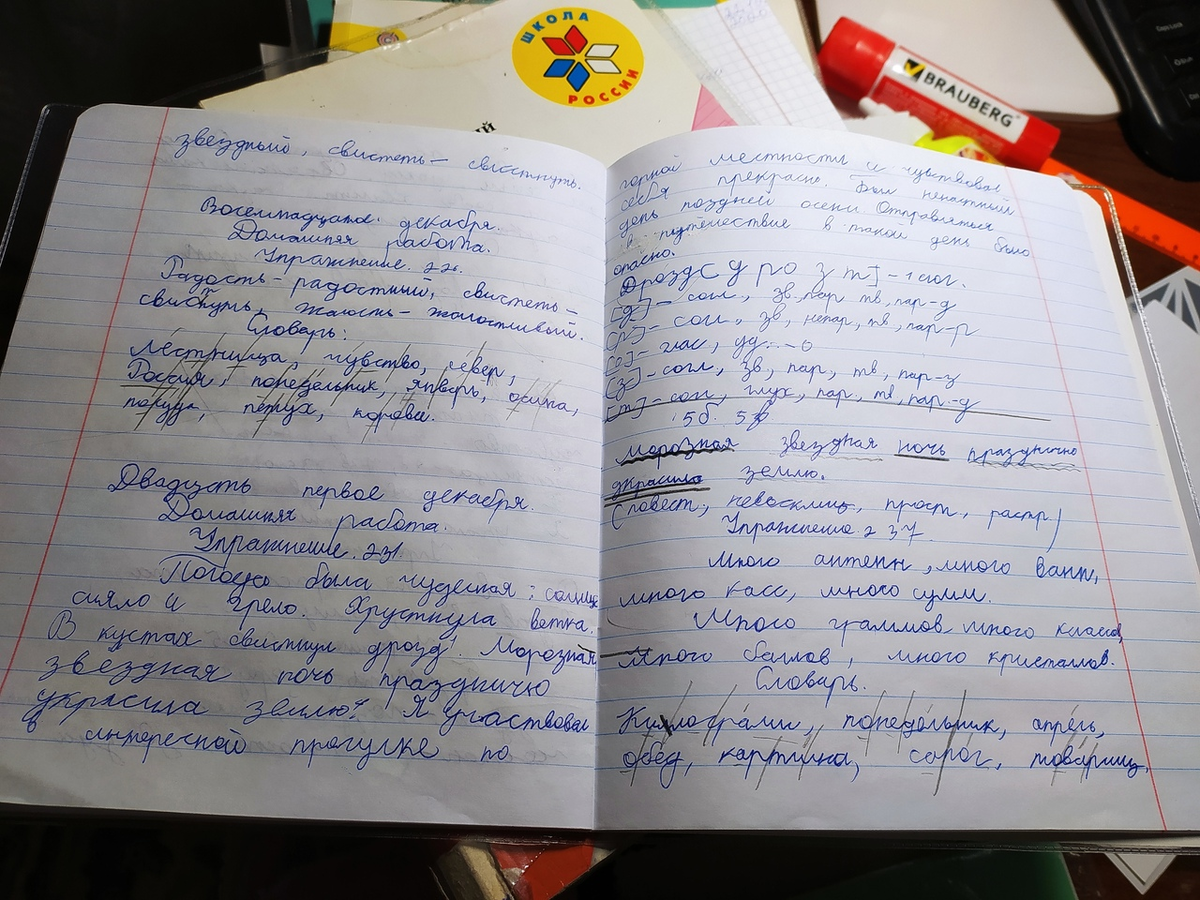 ШКОЛА
РОССИИ
BRAUBERG
звёздный, свистеть – свистнуть.
Восемнадцатое декабря.
Домашняя работа.
Упражнение. 226.
Радость – радостный, свистеть –
свистнуть, жалость – жалостливый.
Словарь:
Лестница, чувство, север,
Россия, понедельник, январь, осина,
покуда, петух, корова.
Двадцать первое декабря.
Домашняя работа.
Упражнение. 231.
Погода была чудесная: солнце
сияло и грело. Хрустнула ветка.
В кустах свистнул дрозд. Морозная
звёздная ночь празднично
украсила землю⁴. Я участвовал
в интересной прогулке по
горной местности и чувствовал
себя прекрасно. Был ненастный
день поздней осени. Отправляться
в путешествие в такой день было
опасно.
Дрозд [д р о з т] – 1 слог.
[д] – согл, зв, пар тв, пар-д
[р] – согл, зв, непар, тв, пар-р
[о] – глас, уд – о
[з] – согл, зв, пар, тв, пар-з
[т] – согл, глух, пар, тв, пар-д
5б. 5зв
Морозная звездная ночь празднично
украсила землю.
(повест, невосклиц, прост, распр)
Упражнение. 237.
Много антенн, много ванн,
много касс, много сумм.
Много граммов много классов,
Много баллов, много кристаллов.
Словарь.
Килограмм, понедельник, апрель,
обед, картина, сапог, товарищ.